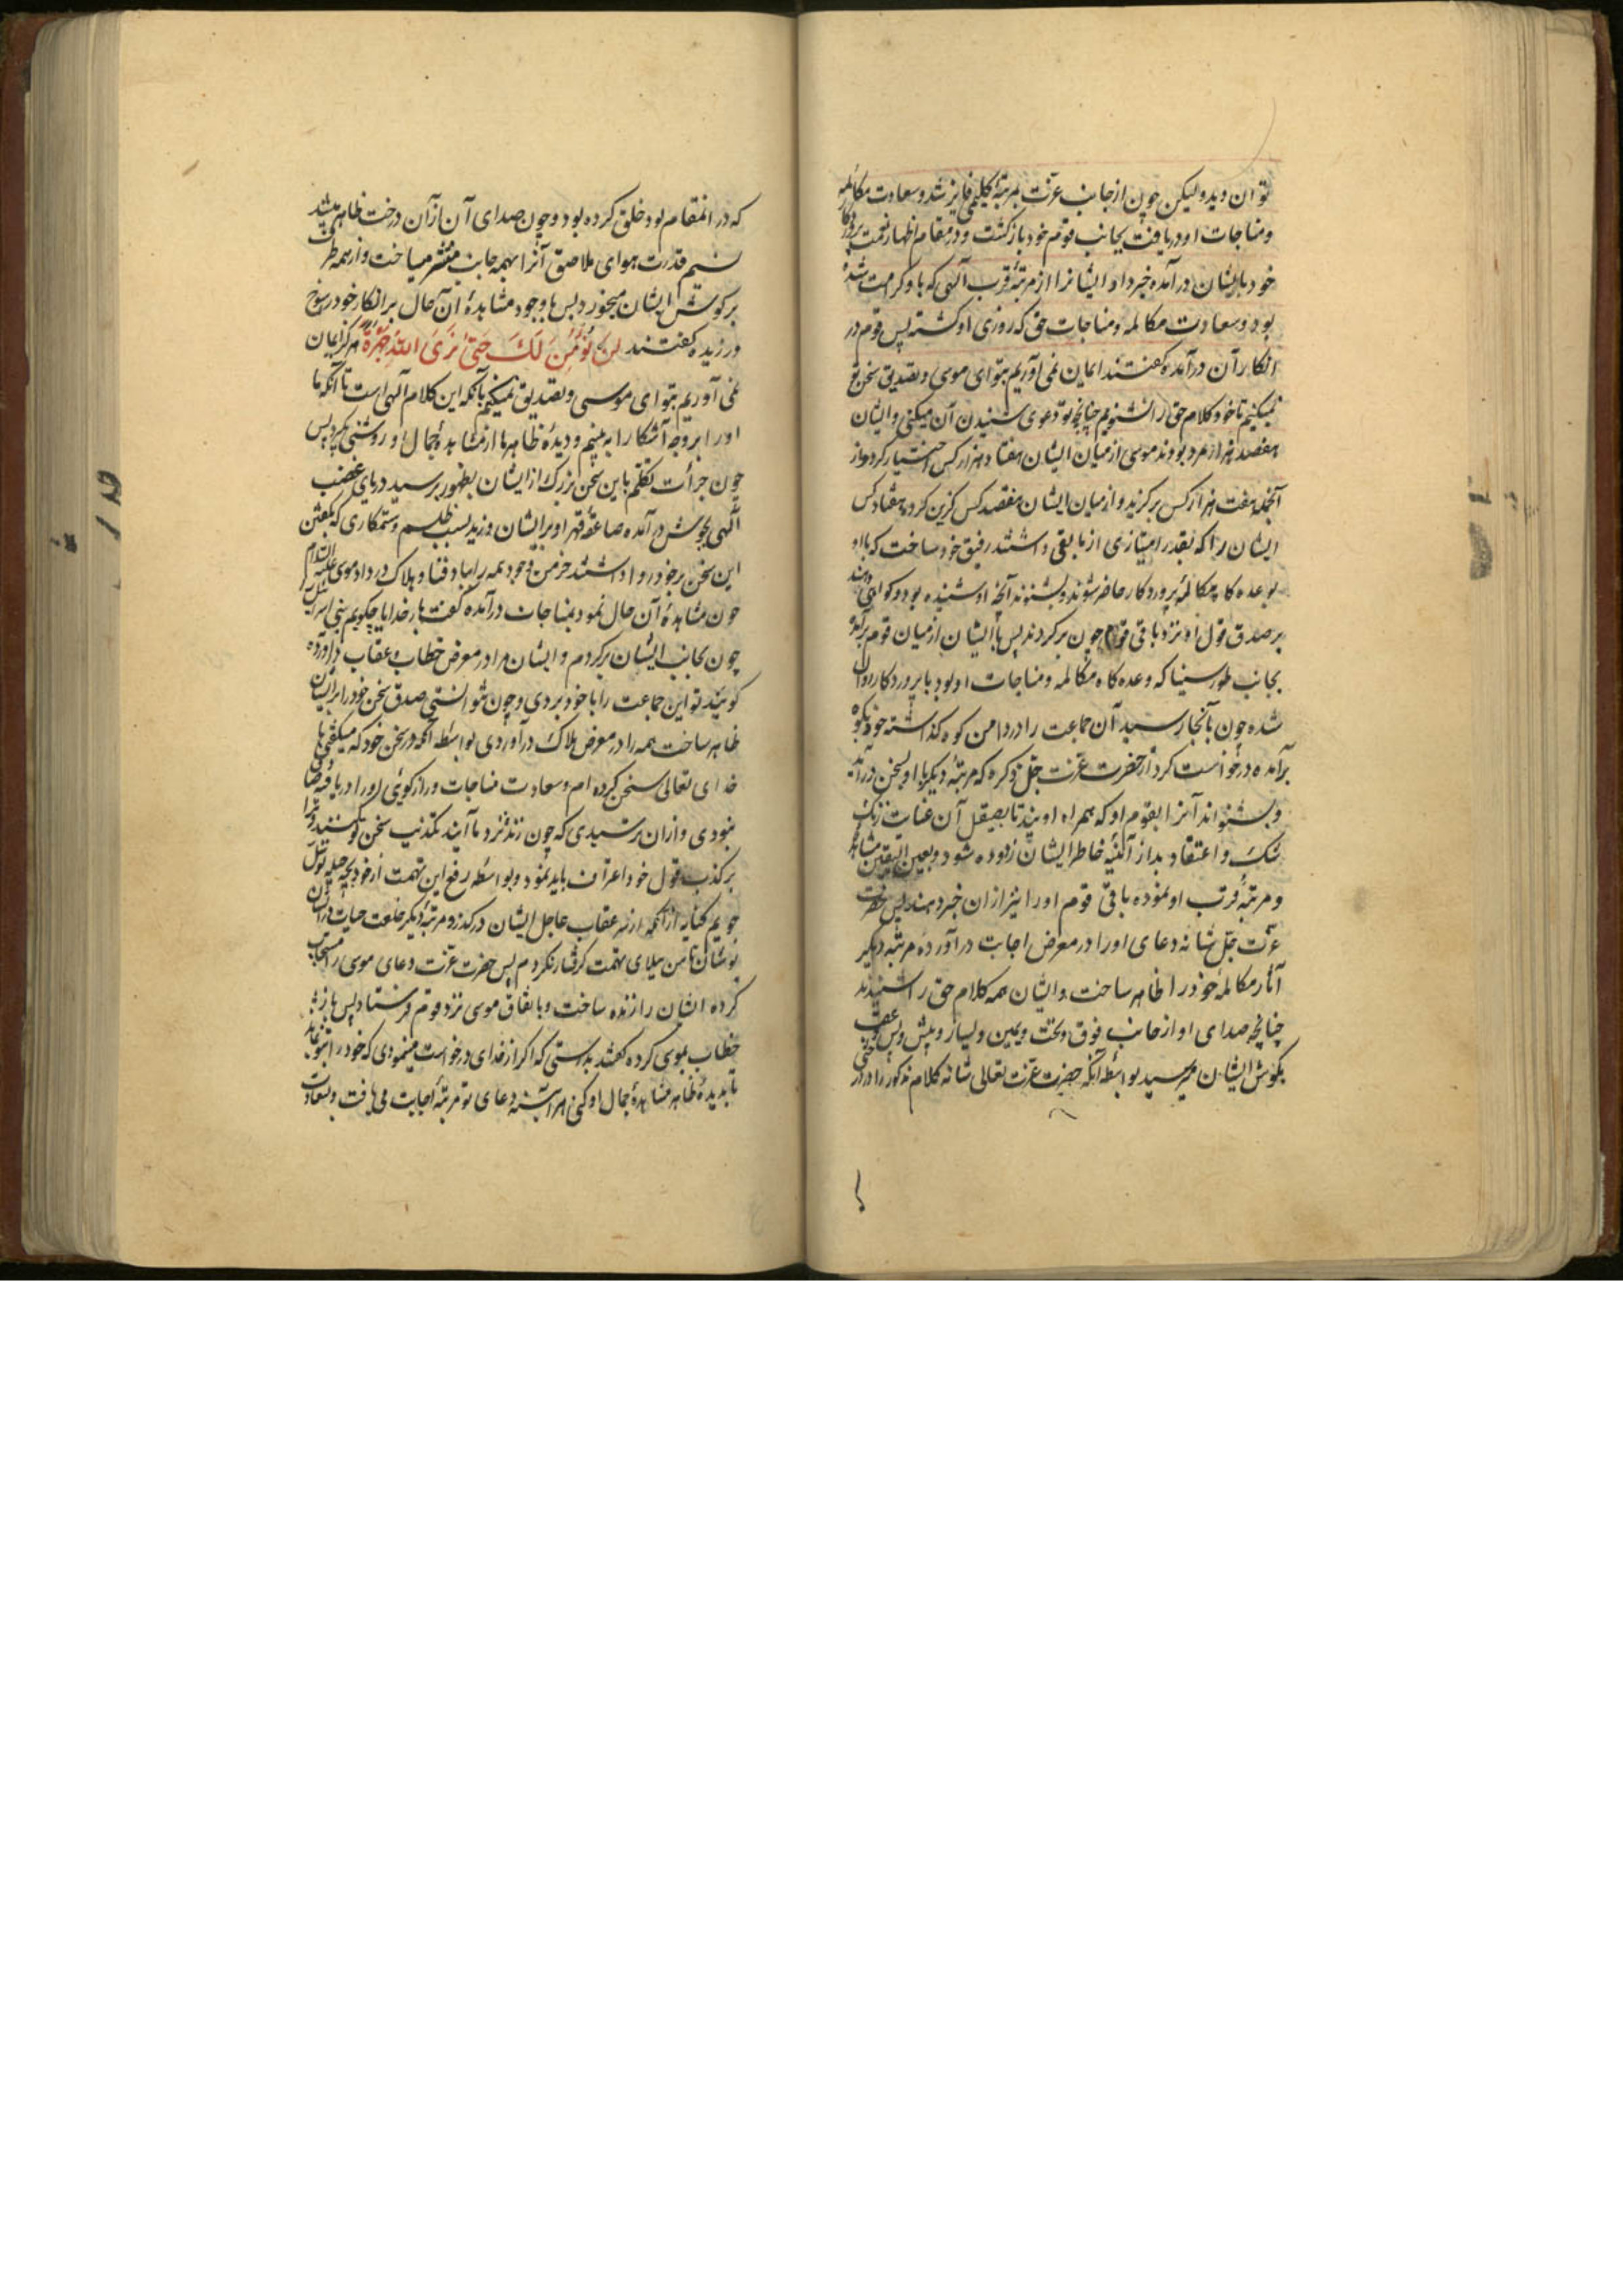 توان دید ولیکن چون از جانب عزت بمرتبهٔ کلیمی فایز شد و سعادت مکالمه
و مناجات او دریافت بجانب قوم خود بازگشت و در مقام اظهار نعمت پروردگار
خود با ایشان در آمده خبر داد ایشانرا از مرتبهٔ قرب الهی که باو کرامت شده
بود و سعادت مکالمه و مناجات حق که روزی او گشته پس قوم در
انکار آن درآمده گفتند ایمان نمی‌آوریم بتو ای موسی و تصدیق سخن تو
نمیکنیم تا خود کلام حق را نشنویم چنانچه تو دعوی شنیدن آن میکنی و ایشان
هفصد هزار مرد بودند موسی از میان ایشان هفتاد هزار کس اختیار کرد و از
آنجمله هفت هزار کس برگزید و از میان ایشان هفصد کس گزین کرده هفتاد کس
ایشان را که بقدر امتیازی از مابقی داشتند رفیق خود ساخت که با او
بوعده گاه مکالمهٔ پروردگار حاضر شوند و بشنوند آنچه او شنیده بود و گواهی دهند
بر صدق قول او نزد باقی قوم چون برگردند پس با ایشان از میان قوم برآمده
بجانب طور سینا که وعده گاه مکالمه و مناجات او بود با پروردگار روان
شده چون بآنجا رسید آن جماعت را در دامن کوه گذاشته خود بکوه
برآمده درخواست کرد از حضرت عزت جل ذکره که مرتبهٔ دیگر با او بسخن درآید
و بشنواند آنرا بقوم او که همراه اویند تا بصیقل آن عنایت زنگ
شک و اعتقاد بد از آئینهٔ خاطر ایشان زدوده شود و بعین الیقین مشاهده
و مرتبهٔ قرب او نموده باقی قوم او را نیز از آن خبر دهند پس حضرت
عزت جل شانه دعای او را در معرض اجابت درآورده مرتبه دیگر
آثار مکالمهٔ خود را ظاهر ساخت و ایشان همه کلام حق را شنیدند
چنانچه صدای او از جانب فوق و تحت و یمین و یسار و پیش و پس عقب
بگوش ایشان میرسید بواسطه آنکه حضرت عزت تعالی شانه کلام مذکور را در درختی
که در آنمقام بود خلق کرده بود و چون صدای آن از آن درخت ظاهر میشد
نسیم قدرت هوای ملاصق آنرا بهمه جانب منتشر میساخت و از همه طرف
بر گوش ایشان میخورد پس با وجود مشاهدهٔ آن حال بر انکار خود رسوخ
ورزیده گفتند لن نؤمن لک حتی نری الله جهرة هرگز ایمان
نمی آوریم بتو ای موسی و تصدیق نمیکنیم بآنکه این کلام الهی است تا آنکه ما
او را بر وجه آشکارا به بینیم و دیدهٔ ظاهر ما از مشاهدهٔ جمال او روشنی پذیرد پس
چون جرأت تکلم باین سخن بزرگ از ایشان بظهور رسید دریای غضب
الهی بجوش درآمده صاعقهٔ قهر او بر ایشان وزید بسبب ظلم و ستمکاری که بگفتن
این سخن بر خود روا داشتند خرمن وجود همه را بباد فنا و هلاک در داد موسی علیه السلام
چون مشاهدهٔ آن حال نمود بمناجات درآمده گفت بار خدایا چگویم بنی اسرائیل
چون بجانب ایشان برگردم و ایشان مرا در معرض خطاب و عقاب درآورده
گویند تو این جماعت را با خود بردی و چون نتوانستی صدق سخن خود را بر ایشان
ظاهر ساخت همه را در معرض هلاک درآوردی بواسطه آنکه در سخن خود که میگفتی با
خدای تعالی سخن کرده ام و سعادت مناجات و رازگویی او را دریافته صادق
نبودی و از آن ترسیدی که چون زنده نزد ما آیند تکذیب سخن تو کنند و ترا
بر کذب قول خود اعتراف باید نمود و بواسطه رفع این تهمت از خود بچه حیله توسل
جویم کنایه از آنکه از سر عقاب عاجل ایشان درگذر و مرتبهٔ دیگر خلعت حیات در ایشان
پوشان تا من ببلای تهمت گرفتار نگردم پس حضرت عزت دعای موسی را مستجاب
کرده ایشان را زنده ساخت و باتفاق موسی نزد قوم فرستاد پس باز
خطاب بموسی کرده گفتند بدرستی که اگر از خدای درخواست مینمودی که خود را بتو نماید
تا بدیدهٔ ظاهر مشاهدهٔ جمال او کنی هر آینه دعای تو مرتبهٔ اجابت می یافت و بسعادت